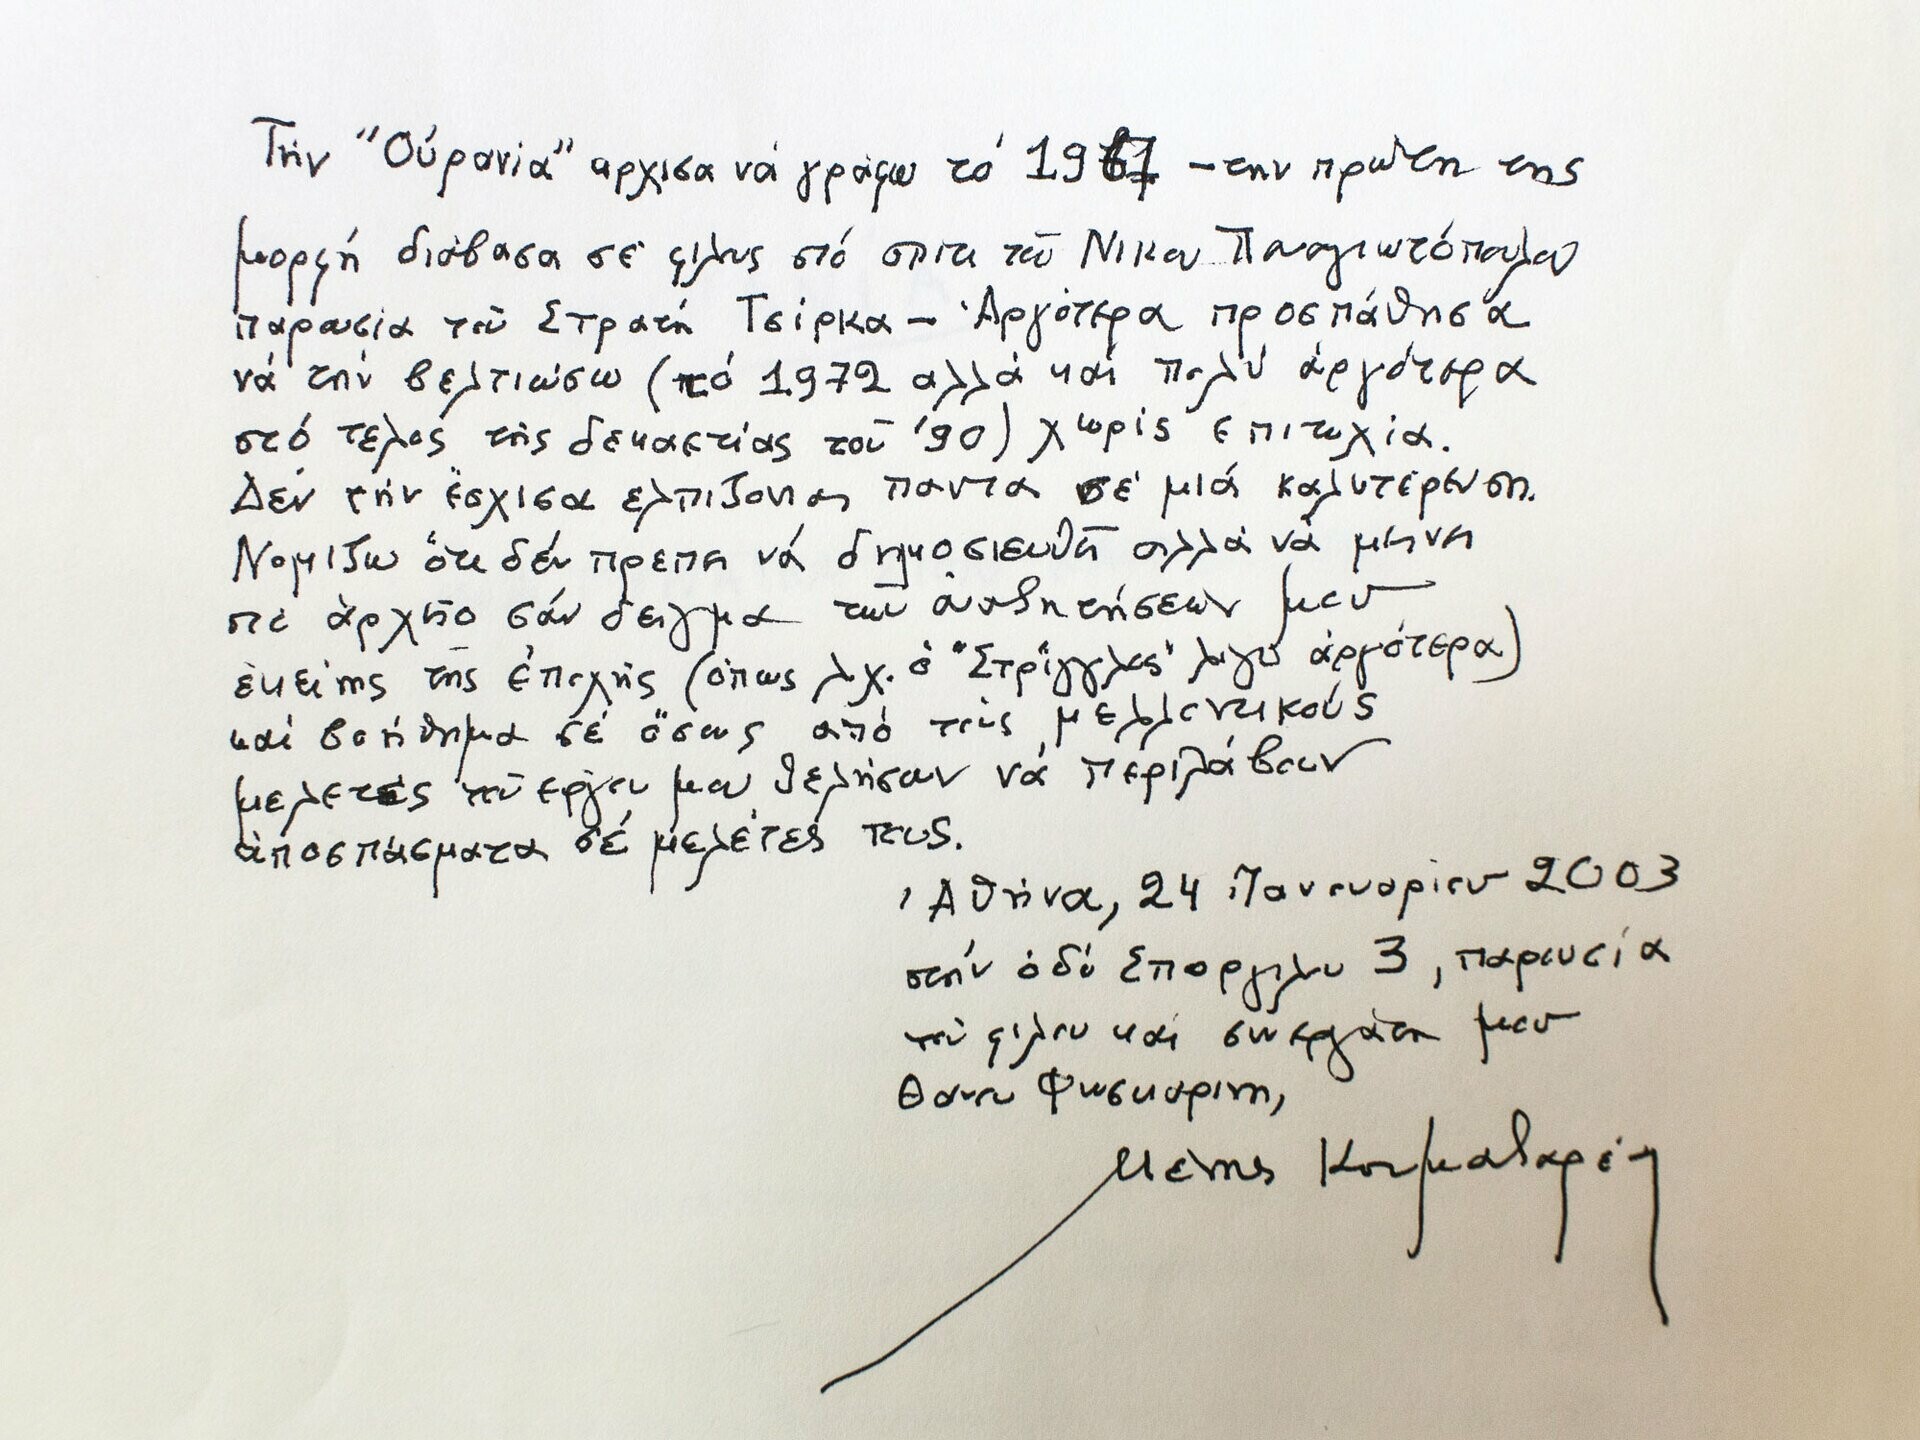 Τήν "Οὐρανία" ἄρχισα νά γράφω τό 1967 – την πρώτη της
μορφή διάβασα σέ φίλους στό σπίτι τοῦ Νίκου Παναγιωτόπουλου
παρουσία τοῦ Στρατή Τσίρκα – Ἀργότερα προσπάθησα
νά τήν βελτιώσω (τό 1972 αλλά καί πολύ ἀργότερα
στό τέλος τῆς δεκαετίας τοῦ '90) χωρίς επιτυχία.
Δέν τήν ἔσχισα ελπίζοντας παντα σέ μιά καλυτέρευση.
Νομίζω ὅτι δέν πρέπει νά δημοσιευθῆ αλλά νά μείνει
στό ἀρχεῖο σάν δείγμα τῶν ἀναζητήσεών μου
ἐκείνης τῆς ἐποχῆς (ὅπως λ.χ. ὁ "Στρίγγλος" λίγο ἀργότερα)
καί βοήθημα σέ ὅσους ἀπό τούς μελλοντικούς
μελετητές τοῦ έργου μου θελήσουν νά περιλάβουν
ἀποσπάσματα σέ μελέτες τους.
Ἀθήνα, 24 Ιανουαρίου 2003
στήν ὁδό Σποργίλου 3, παρουσία
τοῦ φίλου καί συνεργάτη μου
Θανου Φωσκαρινη,
Μένης Κουμανταρέας